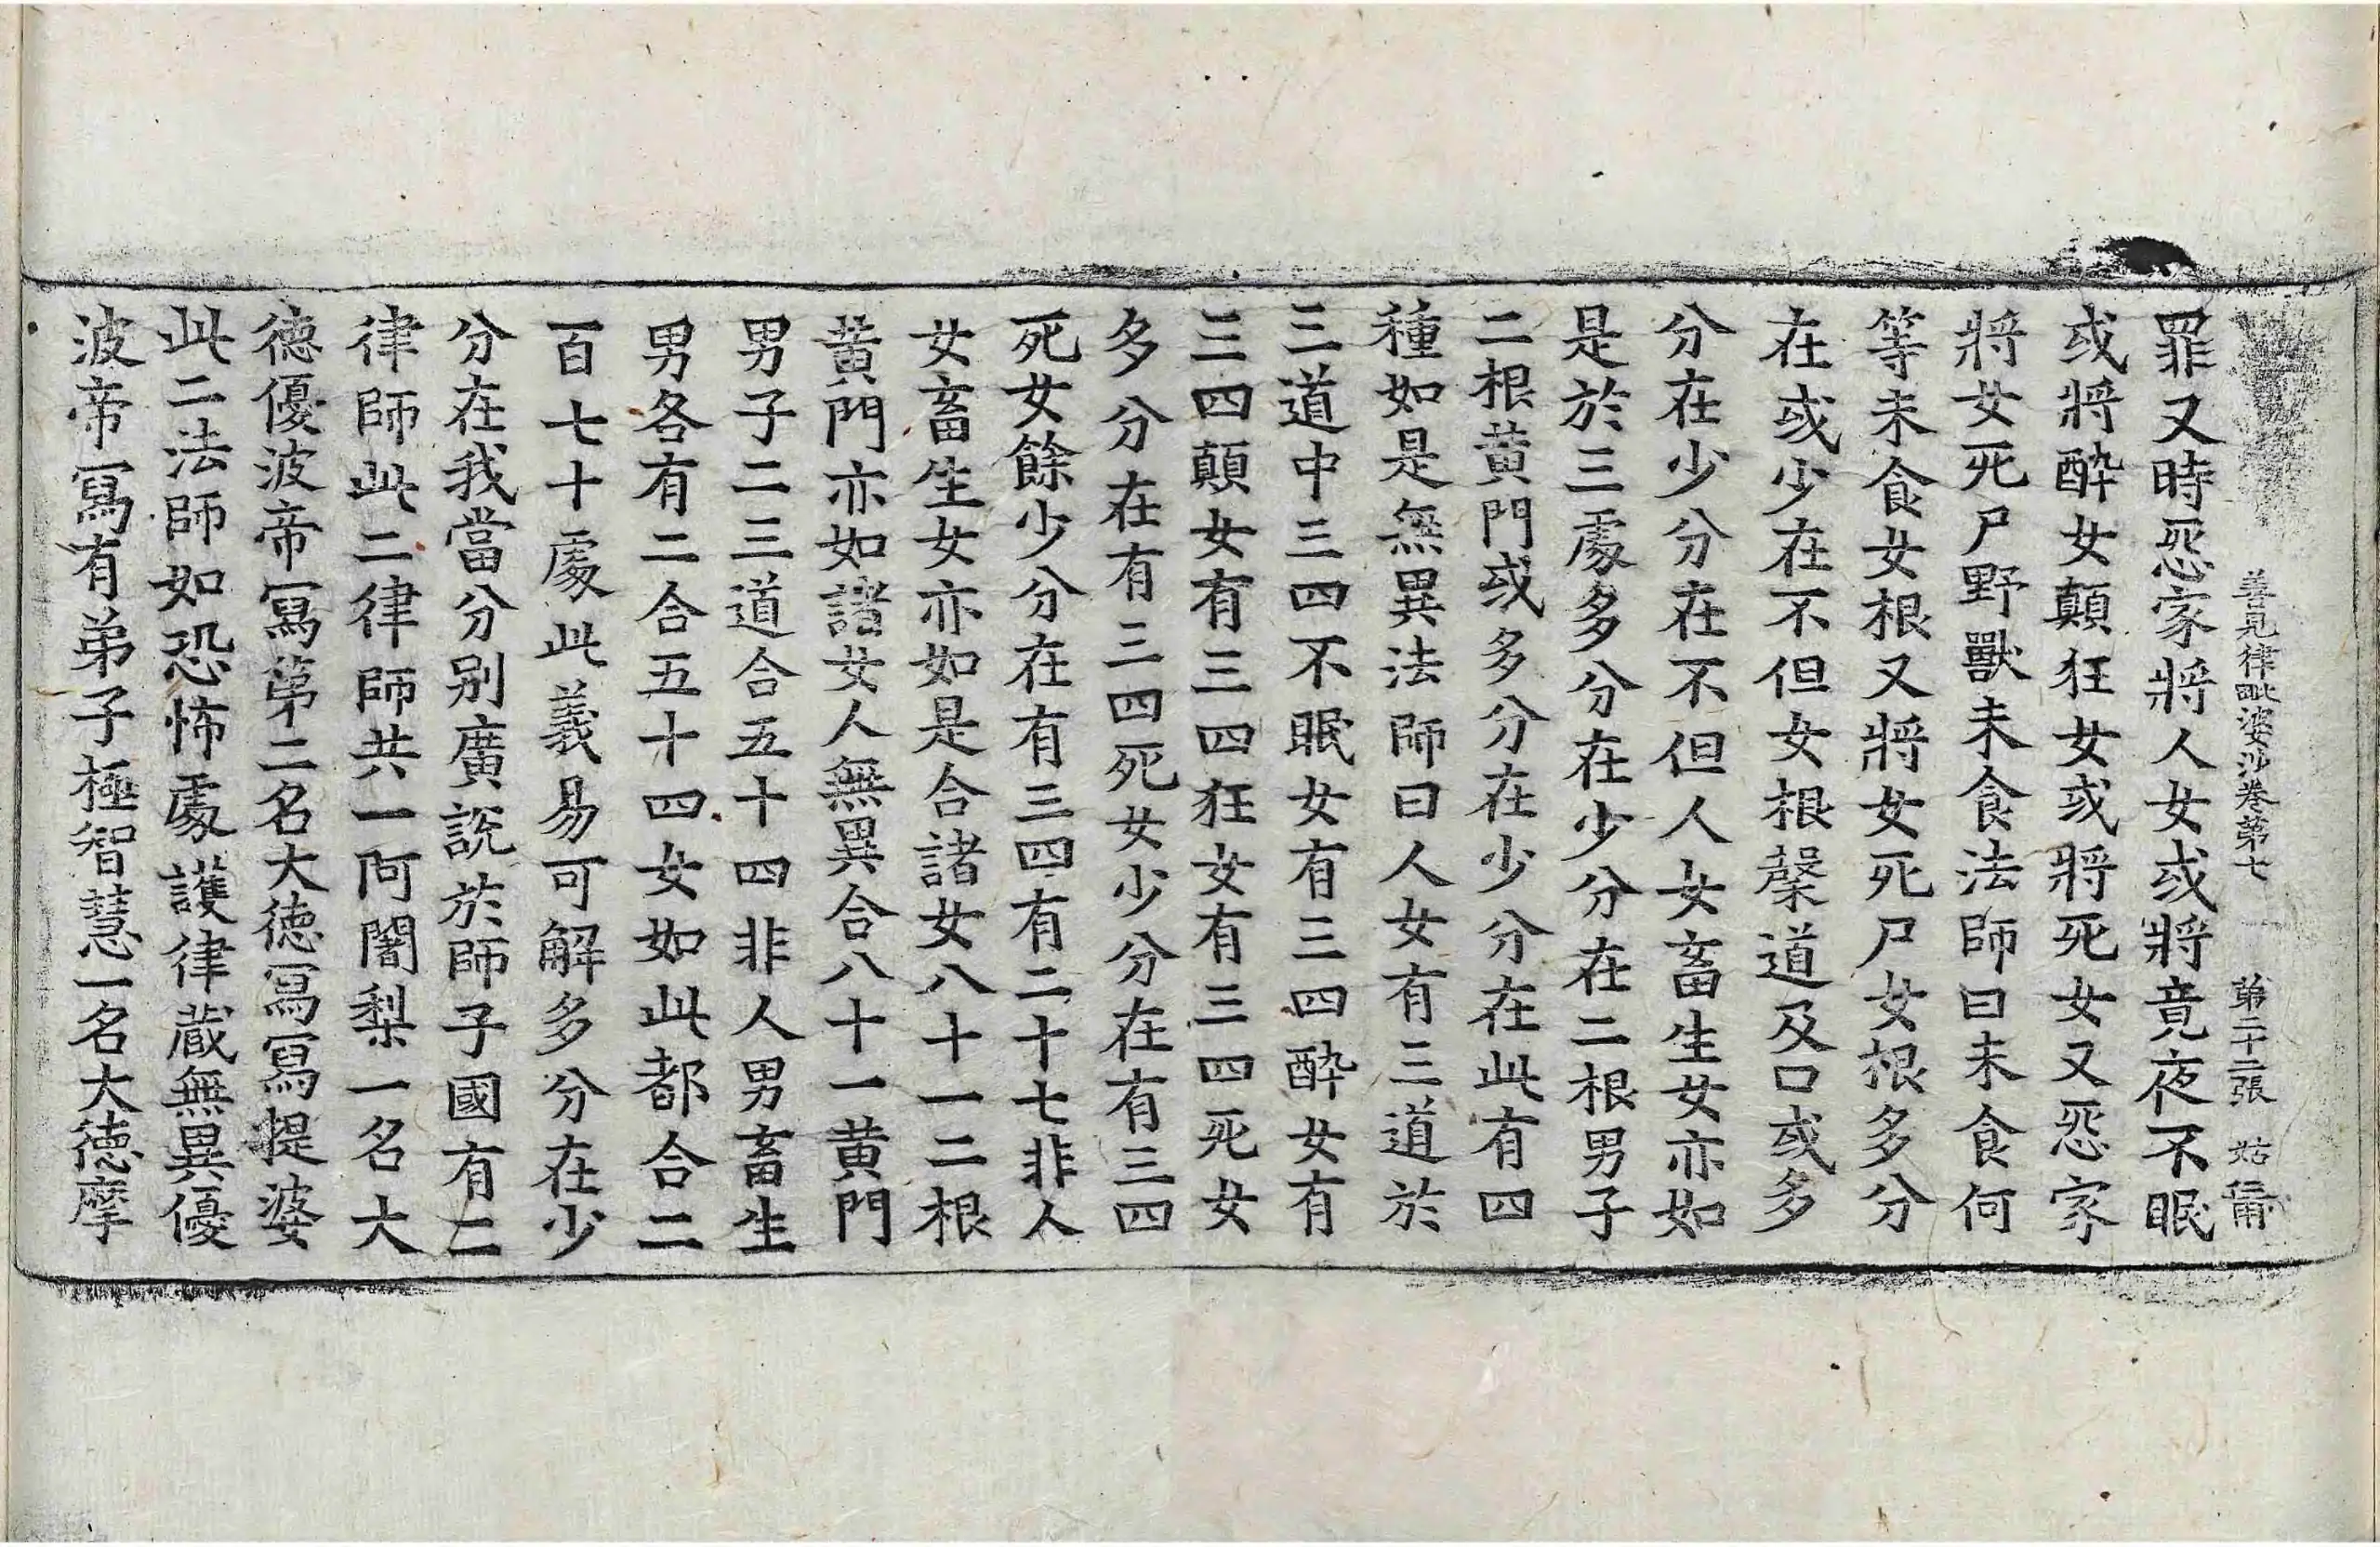 善見律毗婆沙卷第七 第二十二張 姑
罪又時惡家將人女或將竟夜不眠
或將醉女顛狂女或將死女又惡家
將女死尸野獸未食法師曰未食何
等未食女根又將女死尸女根多分
在或少在不但女根槃道及口或多
分在少分在不但人女女畜生女亦如
是於三處多分在少分在二根男子
二根黃門或多分在少分在此有四
種如是無異法師曰人女有三道於
三道中三四不眠女有三四醉女有
三四顛女有三四狂女有三四死女
多分在有三四死女少分在有三四
死女餘少分在有三四有二十七非人
女畜生女亦如是合諸女八十一二根
黃門亦如諸女人無異合八十一黃門
男子二三道合五十四非人男畜生
男各有二合五十四女如此都合二
百七十處此義易可解多分在少
分在我當分別廣說於師子國有二
律師此二律師共一阿闍梨一名大
德優波帝寫第二名大德寫寫提婆
此二法師如恐怖處護律藏無異優
波帝寫有弟子極智慧一名大德摩